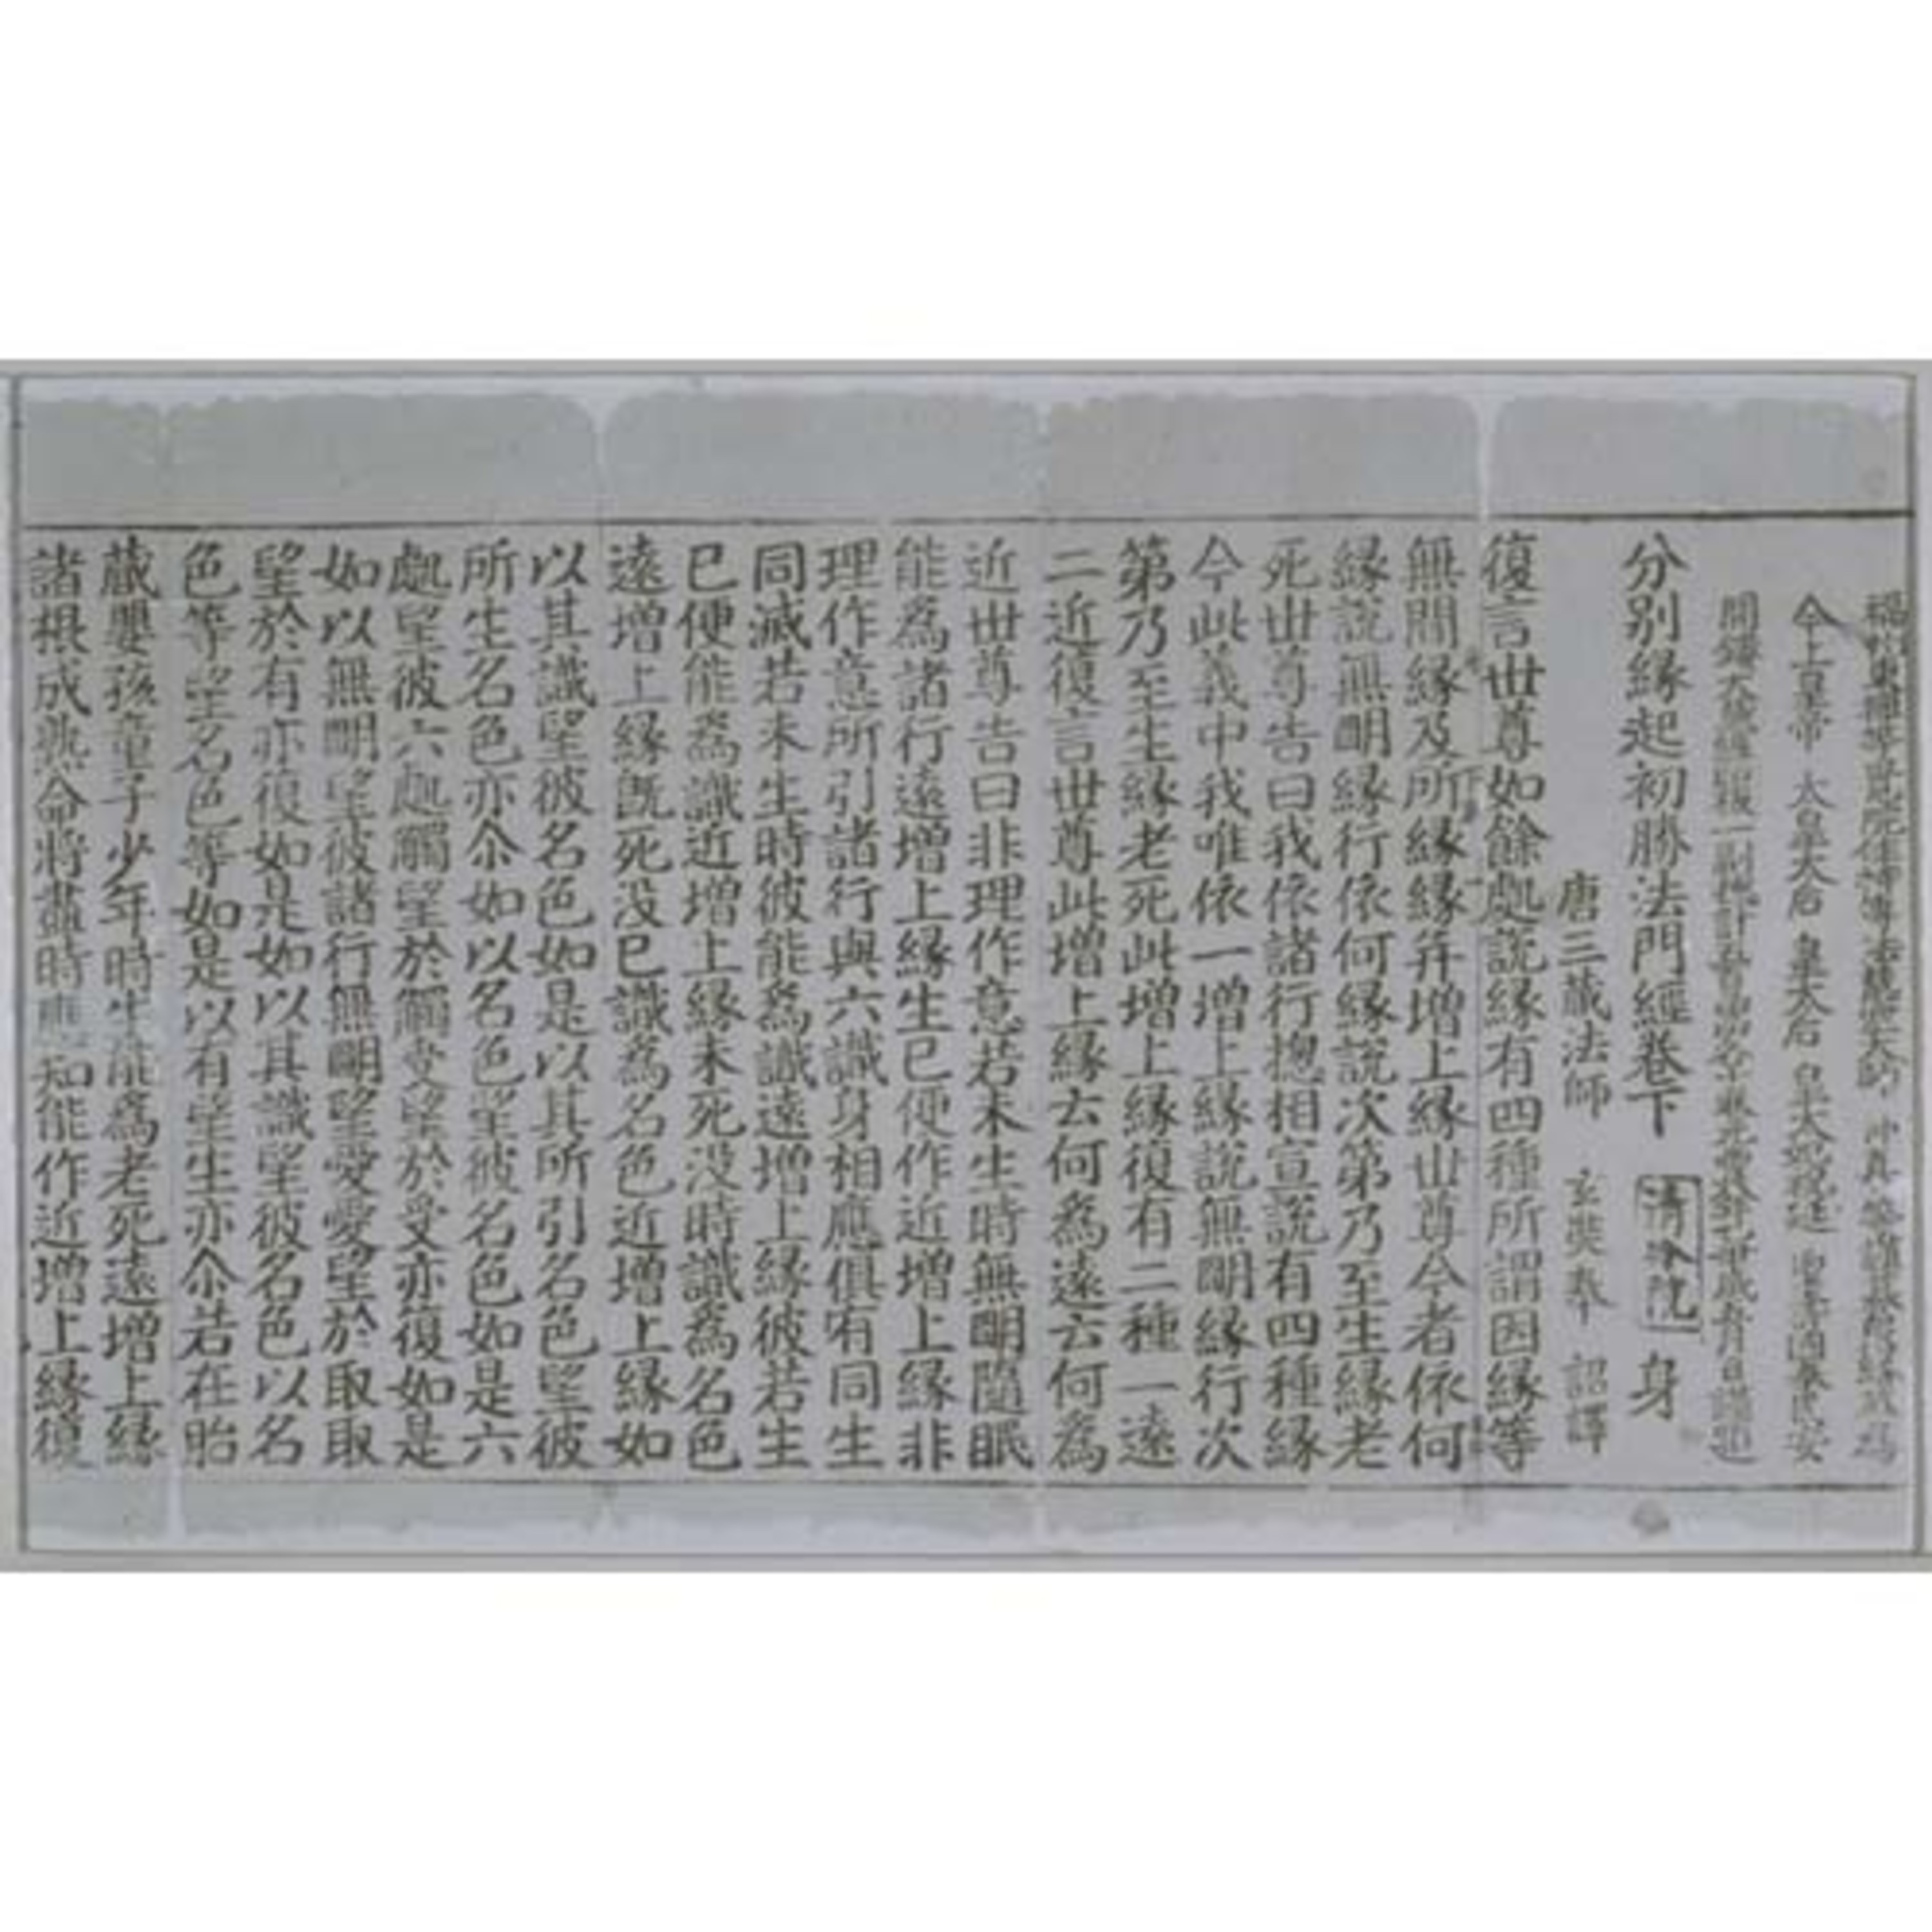 今上皇帝 太皇太后 皇太后
分別緣起初勝法門經卷下 清泠院 身
唐三藏法師 玄奘奉 詔譯
復言世尊如餘處說緣有四種所謂因緣等
無間緣及所緣緣并增上緣世尊今者依何
緣說無明緣行依何緣說次第乃至生緣老
死世尊告曰我依諸行揔相宣說有四種緣
今此義中我唯依一增上緣說無明緣行次
第乃至生緣老死此增上緣復有二種一遠
二近復言世尊此增上緣云何為遠云何為
近世尊告曰非理作意若未生時無明隨眠
能為諸行遠增上緣生已便作近增上緣非
理作意所引諸行與六識身相應俱有同生
同滅若未生時彼能為識遠增上緣彼若生
已便能為識近增上緣未死沒時識為名色
遠增上緣既死沒已識為名色近增上緣如
以其識望彼名色如是以其所引名色望彼
所生名色亦尒如以名色望彼名色如是六
處望彼六處觸望於觸受望於受亦復如是
如以無明望彼諸行無明望愛愛望於取取
望於有亦復如是如以其識望彼名色以名
色等望名色等如是以有望生亦尒若在胎
藏嬰孩童子少年時生能為老死遠增上緣
諸根成熟命將盡時應知能作近增上緣復